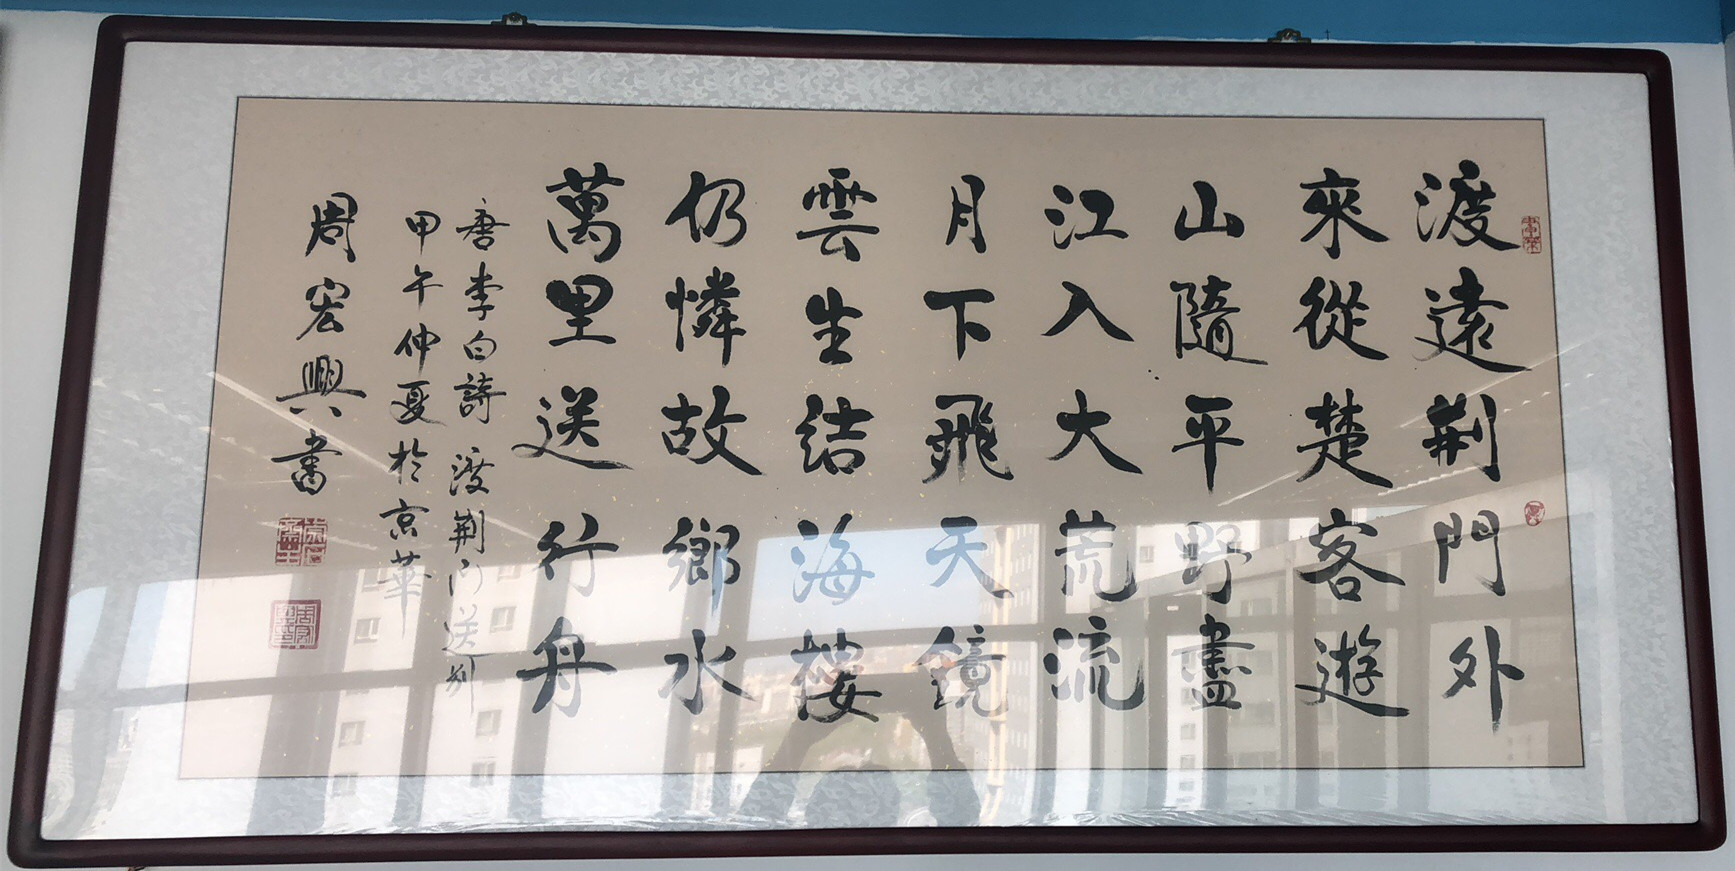 渡遠荆門外
來從楚客遊
山隨平野盡
江入大荒流
月下飛天鏡
雲生结海楼
仍憐故鄉水
萬里送行舟
唐李白詩渡荆门送别
甲午仲夏於京華
周宏興書